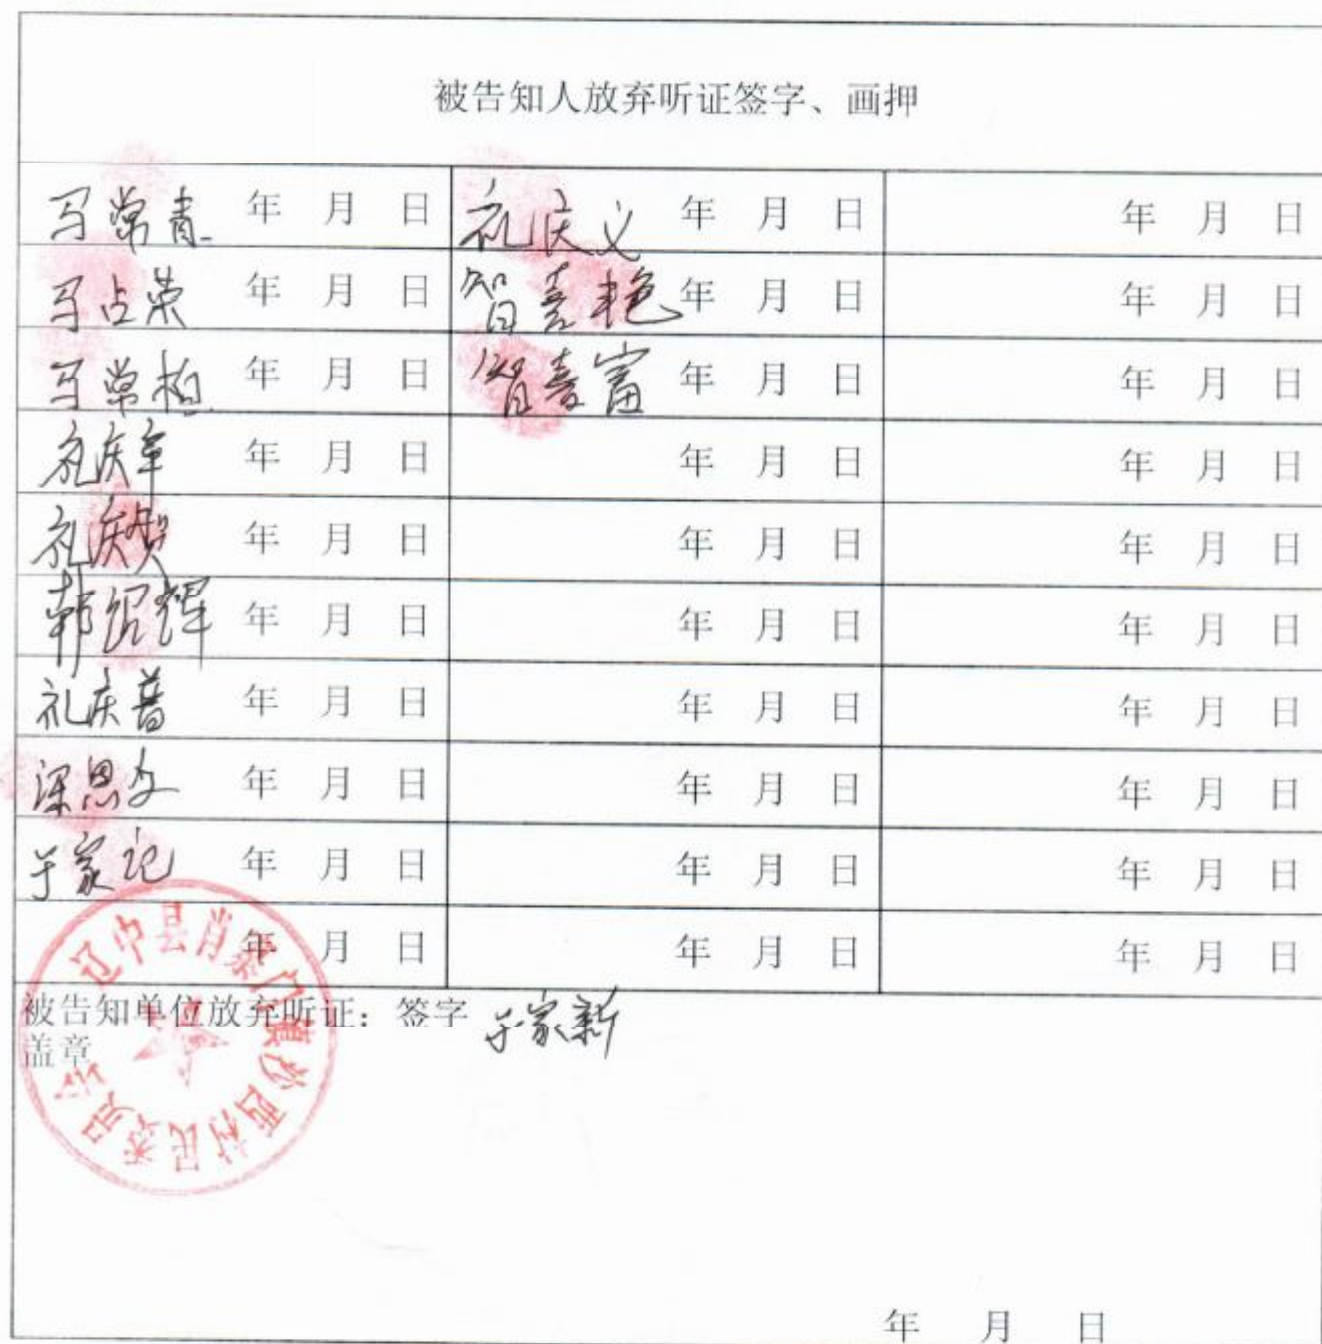 被告知人放弃听证签字、画押
马常青 年 月 日 礼庆义 年 月 日 年 月 日
马占荣 年 月 日 智喜艳 年 月 日 年 月 日
马常柏 年 月 日 智喜富 年 月 日 年 月 日
礼庆军 年 月 日 年 月 日 年 月 日
礼庆贺 年 月 日 年 月 日 年 月 日
韩绍辉 年 月 日 年 月 日 年 月 日
礼庆普 年 月 日 年 月 日 年 月 日
深恩文 年 月 日 年 月 日 年 月 日
于家记 年 月 日 年 月 日 年 月 日
年 月 日 年 月 日 年 月 日
被告知单位放弃听证：签字 于家新
盖章
辽中县肖寨门镇妙西村民委员会
年 月 日